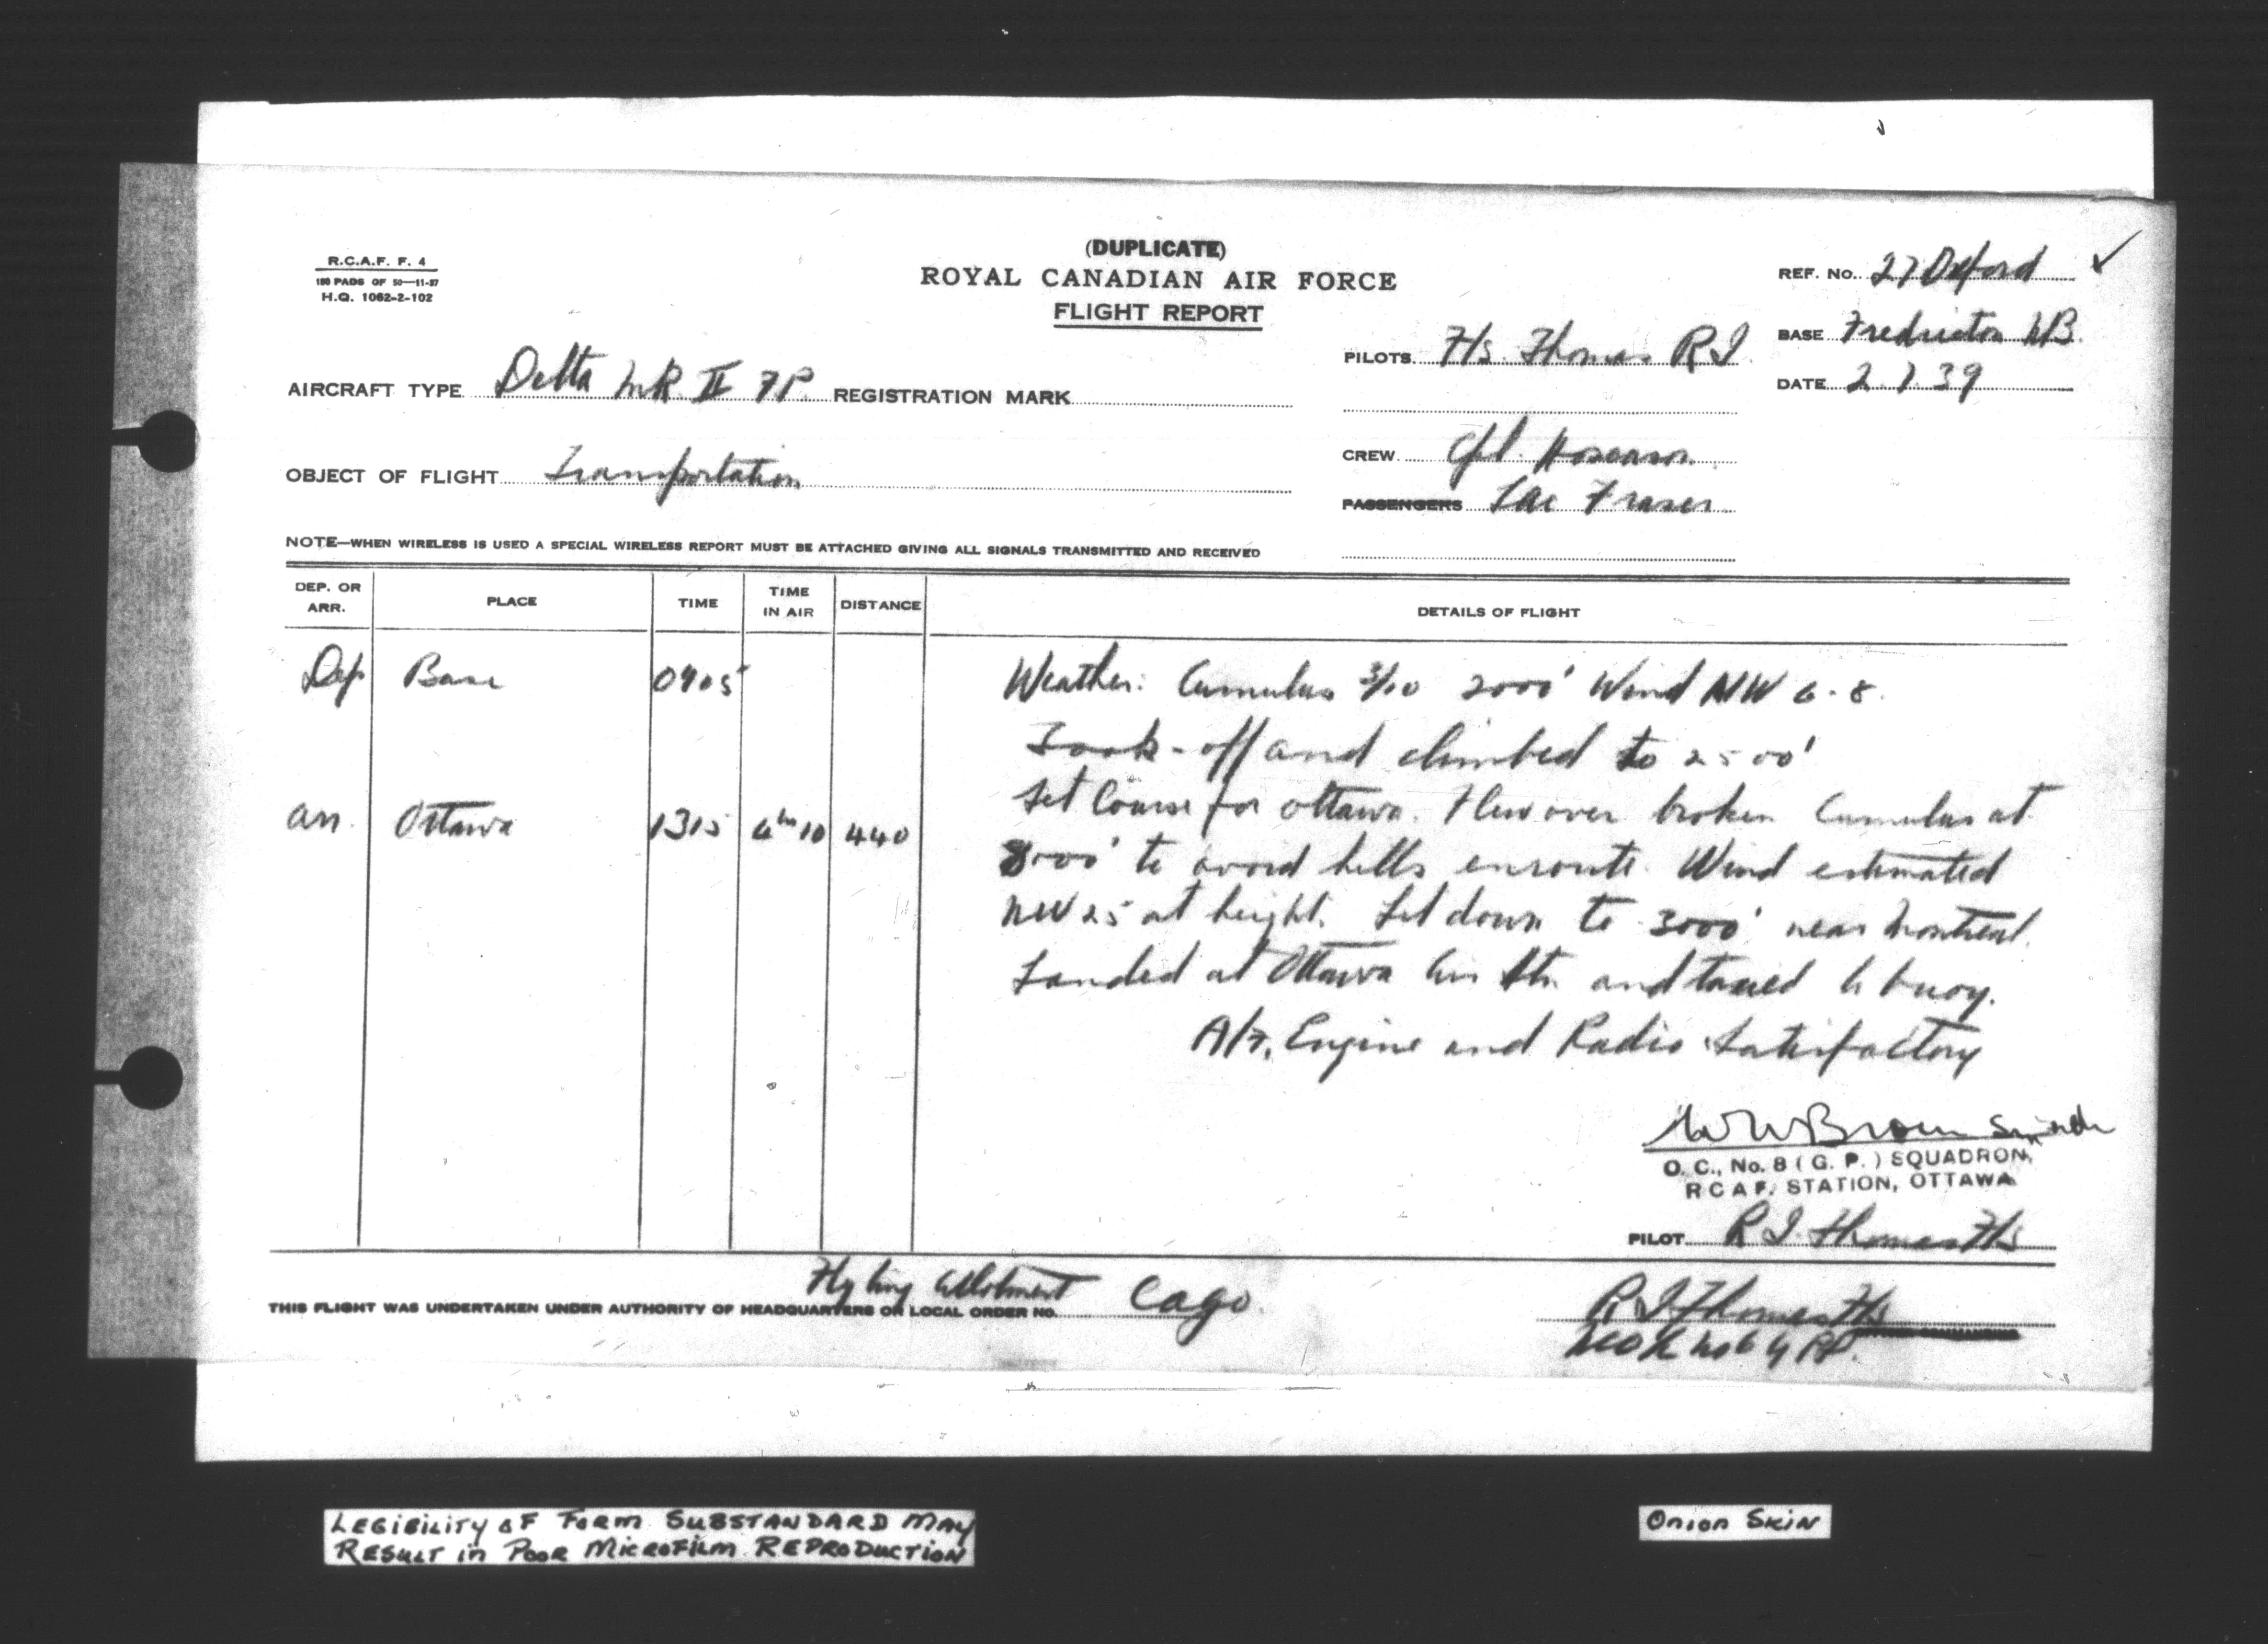 (DUPLICATE)
ROYAL CANADIAN AIR FORCE
FLIGHT REPORT
R.C.A.F. F. 4
150 PADS OF 50—11-37
H.Q. 1062-2-102
REF. No. 27 Oxford ✓
BASE Fredricton NB.
DATE 2.7.39
PILOTS F/S. Thomas R I
AIRCRAFT TYPE Delta MK II FP. REGISTRATION MARK
CREW Cpl. Hoseason
OBJECT OF FLIGHT Transportation
PASSENGERS LAC Fraser
NOTE—WHEN WIRELESS IS USED A SPECIAL WIRELESS REPORT MUST BE ATTACHED GIVING ALL SIGNALS TRANSMITTED AND RECEIVED
DEP. OR ARR. PLACE TIME TIME IN AIR DISTANCE DETAILS OF FLIGHT
Dep Base 0905
Weather: Cumulus 3/10 2000' Wind NW 6-8.
Took-off and climbed to 2500'
Set Course for Ottawa. Flew over broken Cumulus at
Arr. Ottawa 1315 4 hr 10 440
8000' to avoid hills enroute. Wind estimated
NW 25 at height. Let down to 3000' near Montreal.
Landed at Ottawa Air Stn. and taxied to buoy.
A/F, Engine and Radio Satisfactory
O. C., No. 8 ( G. P. ) SQUADRON,
R C A F. STATION, OTTAWA
PILOT R I Thomas F/S
Flying Allotment Cago
THIS FLIGHT WAS UNDERTAKEN UNDER AUTHORITY OF HEADQUARTERS OR LOCAL ORDER NO.
R I Thomas F/S
LEGIBILITY OF FORM SUBSTANDARD MAY
RESULT IN POOR MICROFILM REPRODUCTION
ONION SKIN